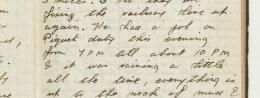 fixing the railway line up
again. We had a job on
Piquet duty this evening
from 7 PM till about 10 PM
& it was raining a little
all the time, everything is
up to the neck of mud &